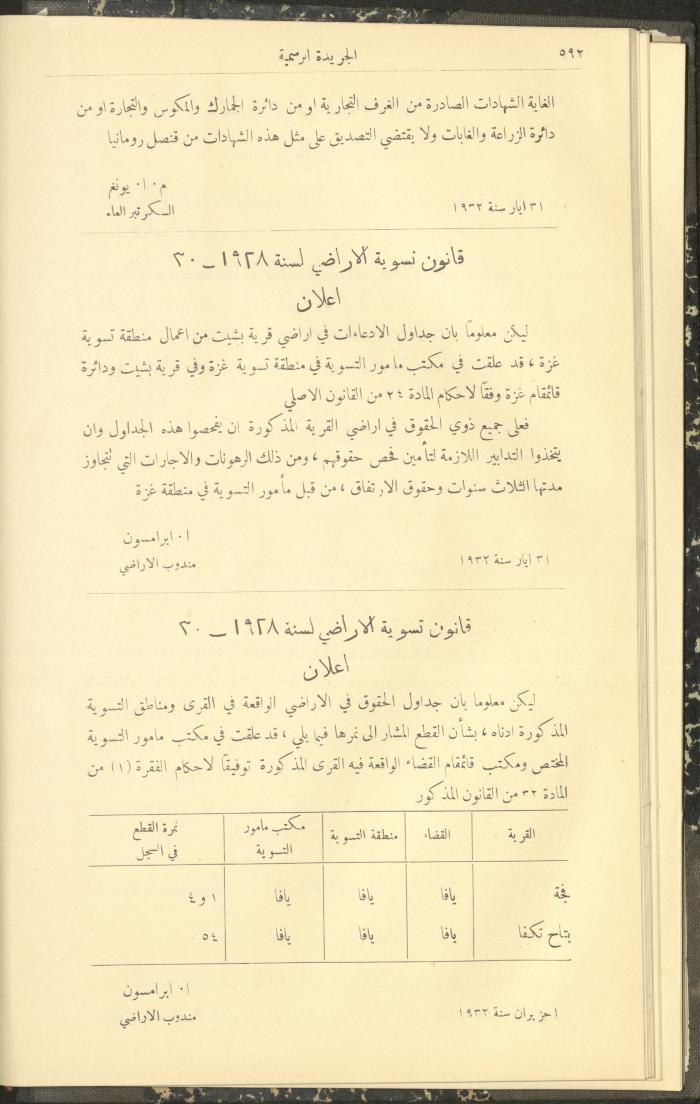 ٥٩٢
الجريدة الرسمية
الغاية الشهادات الصادرة من الغرف التجارية او من دائرة الجمارك والمكوس والتجارة او من
دائرة الزراعة والغابات ولا يقتضي التصديق على مثل هذه الشهادات من قنصل رومانيا
م٠ ا٠ يونغ
٣١ ايار سنة ١٩٣٢
السكرتير العام
قانون تسوية الاراضي لسنة ١٩٢٨ــ٣٠
اعلان
ليكن معلوماً بان جداول الادعاءات في اراضي قرية بشيت من اعمال منطقة تسوية
غزة ، قد علقت في مكتب مامور التسوية في منطقة تسوية غزة وفي قرية بشيت ودائرة
قائمقام غزة وفقاً لاحكام المادة ٢٤ من القانون الاصلي
فعلى جميع ذوي الحقوق في اراضي القرية المذكورة ان يفحصوا هذه الجداول وان
يتخذوا التدابير اللازمة لتأمين فحص حقوقهم ، ومن ذلك الرهونات والاجارات التي تتجاوز
مدتها الثلاث سنوات وحقوق الارتفاق ، من قبل مأمور التسوية في منطقة غزة
ا٠ ابرامسون
٣١ ايار سنة ١٩٣٢
مندوب الاراضي
قانون تسوية الاراضي لسنة ١٩٢٨ــ٣٠
اعلان
ليكن معلوما بان جداول الحقوق في الاراضي الواقعة في القرى ومناطق التسوية
المذكورة ادناه ، بشأن القطع المشار الى نمرها فيما يلي ، قد علقت في مكتب مامور التسوية
المختص ومكتب قائمقام القضاء الواقعة فيه القرى المذكورة توفيقاً لاحكام الفقرة (١) من
المادة ٣٢ من القانون المذكور
القرية القضاء منطقة التسوية مكتب مامور التسوية نمرة القطع في السجل
فجة يافا يافا يافا ١ و ٤
بتاح تكفا يافا يافا يافا ٥٤
ا٠ ابرامسون
١ حزيران سنة ١٩٣٢
مندوب الاراضي